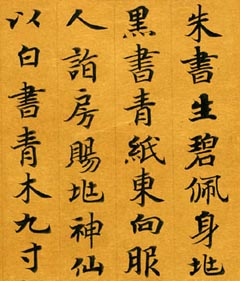 朱書生碧佩身地
黑書青紙東向服
人詣房賜地神仙
以白書青木九寸